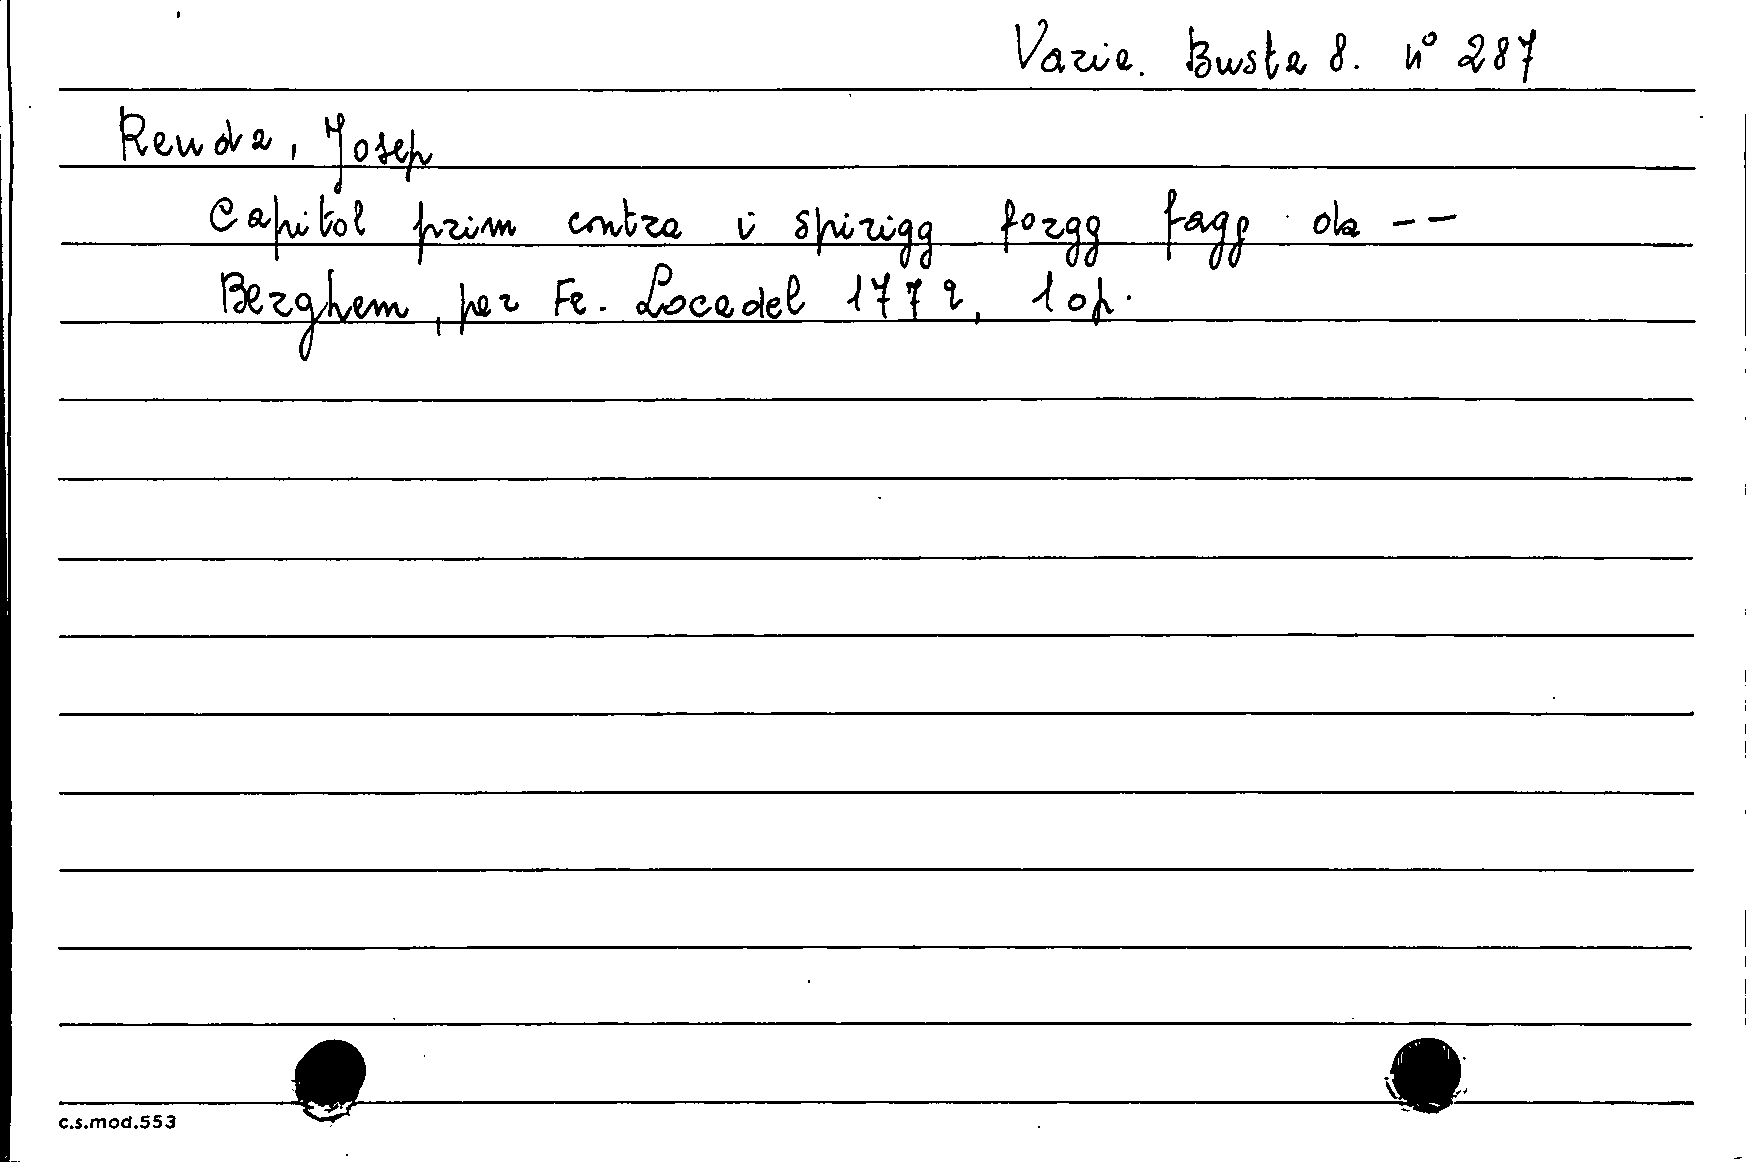 Varie. Busta 8. n° 287
Renda, Josep
Capitol prim contra i spirigg forgg fagg da --
Berghem, per Fr. Locadel 1772, 1 op.
c.s.mod.553